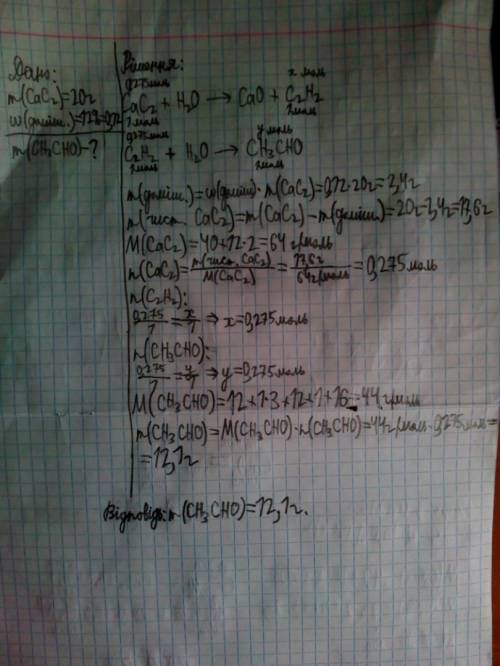 Дано:
m(CaC₂)=20г
ω(доміш.)=12%=0,12
m(CH₃CHO)-?
Рішення:
0,275моль х моль
CaC₂ + H₂O → CaO + C₂H₂
1моль 1моль
0,275моль у моль
C₂H₂ + H₂O → CH₃CHO
1моль 1моль
m(доміш.)=ω(доміш)·m(CaC₂)=0,12·20г=2,4г
m(чист. CaC₂)=m(CaC₂)-m(доміш.)=20г-2,4г=17,6г
M(CaC₂)=40+12·2=64 г/моль
n(CaC₂)=m(чист. CaC₂)/M(CaC₂)=17,6г/64г/моль=0,275моль
n(C₂H₂):
0,275/1=x/1 ⇒ x=0,275моль
n(CH₃CHO):
0,275/1=y/1 ⇒ y=0,275моль
M(CH₃CHO)=12+1·3+12+1+16=44 г/моль
m(CH₃CHO)=M(CH₃CHO)·n(CH₃CHO)=44г/моль·0,275моль=
=12,1г
Відповідь: m(CH₃CHO)=12,1г.